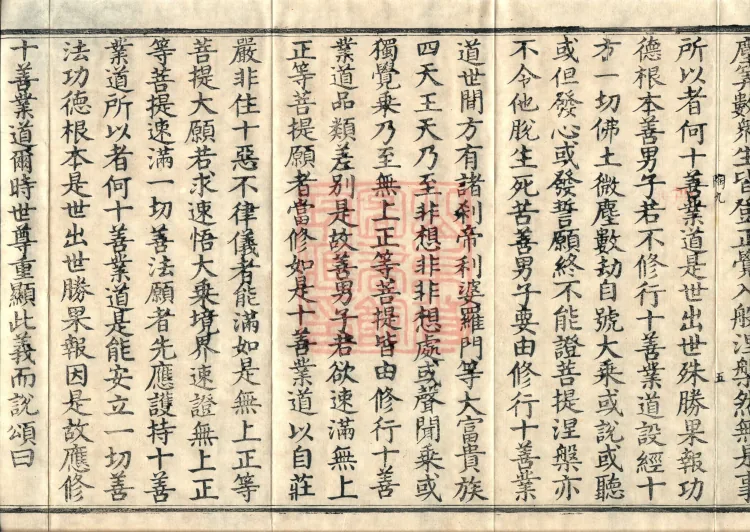 塵等數衆生皆登正覺入般涅槃然無是事
所以者何十善業道是世出世殊勝果報功
德根本善男子若不修行十善業道設經十
方一切佛土微塵數劫自號大乘或說或聽
或但發心或發誓願終不能證菩提涅槃亦
不令他脫生死苦善男子要由修行十善業
道世間方有諸刹帝利婆羅門等大富貴族
四天王天乃至非想非非想處或聲聞乘或
獨覺乘乃至無上正等菩提皆由修行十善
業道品類差別是故善男子若欲速滿無上
正等菩提願者當修如是十善業道以自莊
嚴非住十惡不律儀者能滿如是無上正等
菩提大願若求速悟大乘境界速證無上正
等菩提速滿一切善法願者先應護持十善
業道所以者何十善業道是能安立一切善
法功德根本是世出世勝果報因是故應修
十善業道爾時世尊重顯此義而說頌曰
五